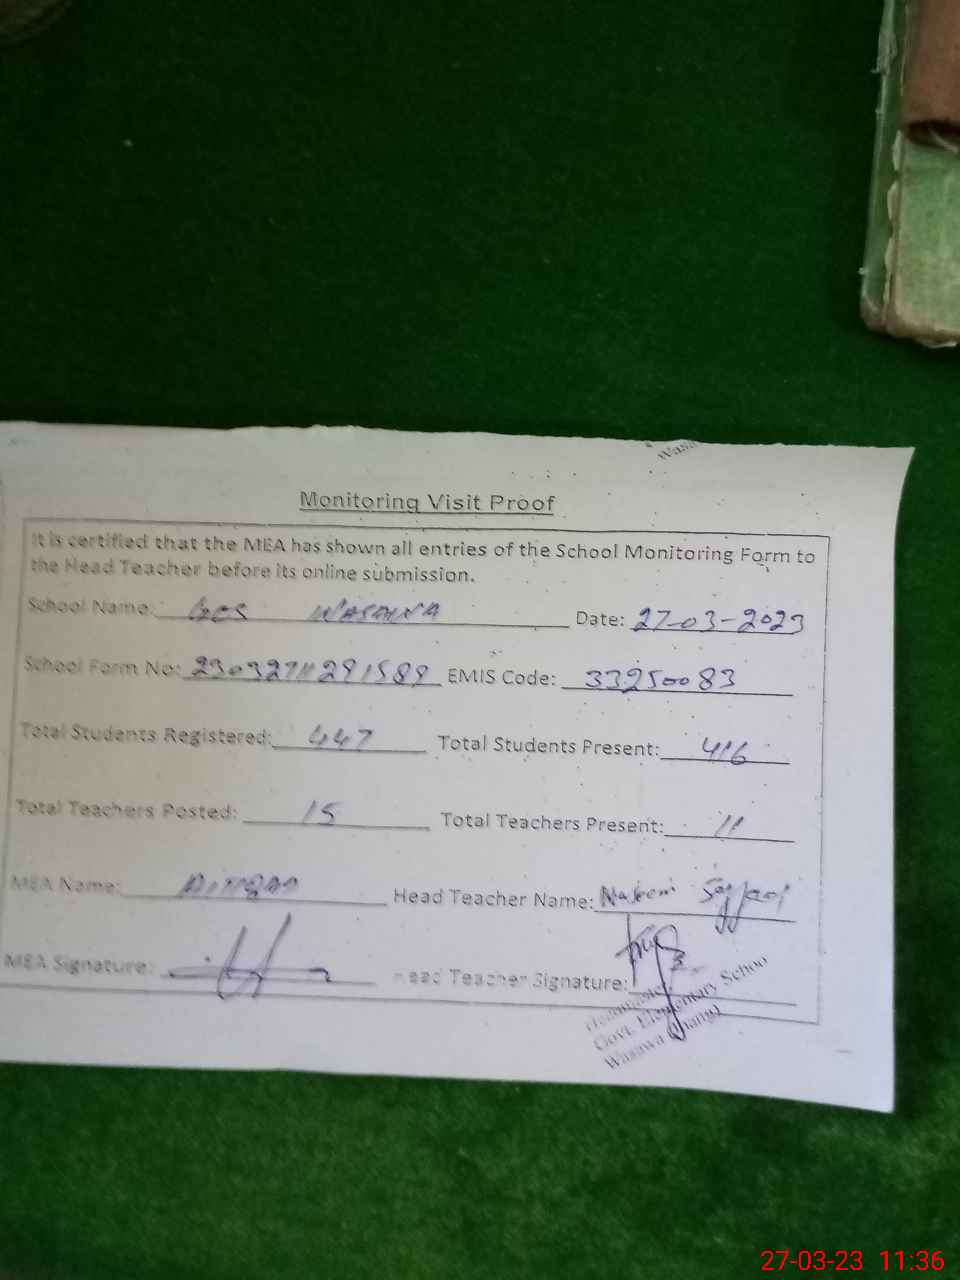 Monitoring Visit Proof
It is certified that the MEA has shown all entries of the School Monitoring Form to
the Head Teacher before its online submission.
School Name: GES Date: 27-03-2023
School Form No: EMIS Code: 33250083
Total Students Registered: 447 Total Students Present: 416
Total Teachers Posted: 15 Total Teachers Present: 11
MEA Name: Head Teacher Name:
MEA Signature: Head Teacher Signature:
Headmaster
Govt. Elementary Schoo
Wasawa (Jhang)
27-03-23 11:36